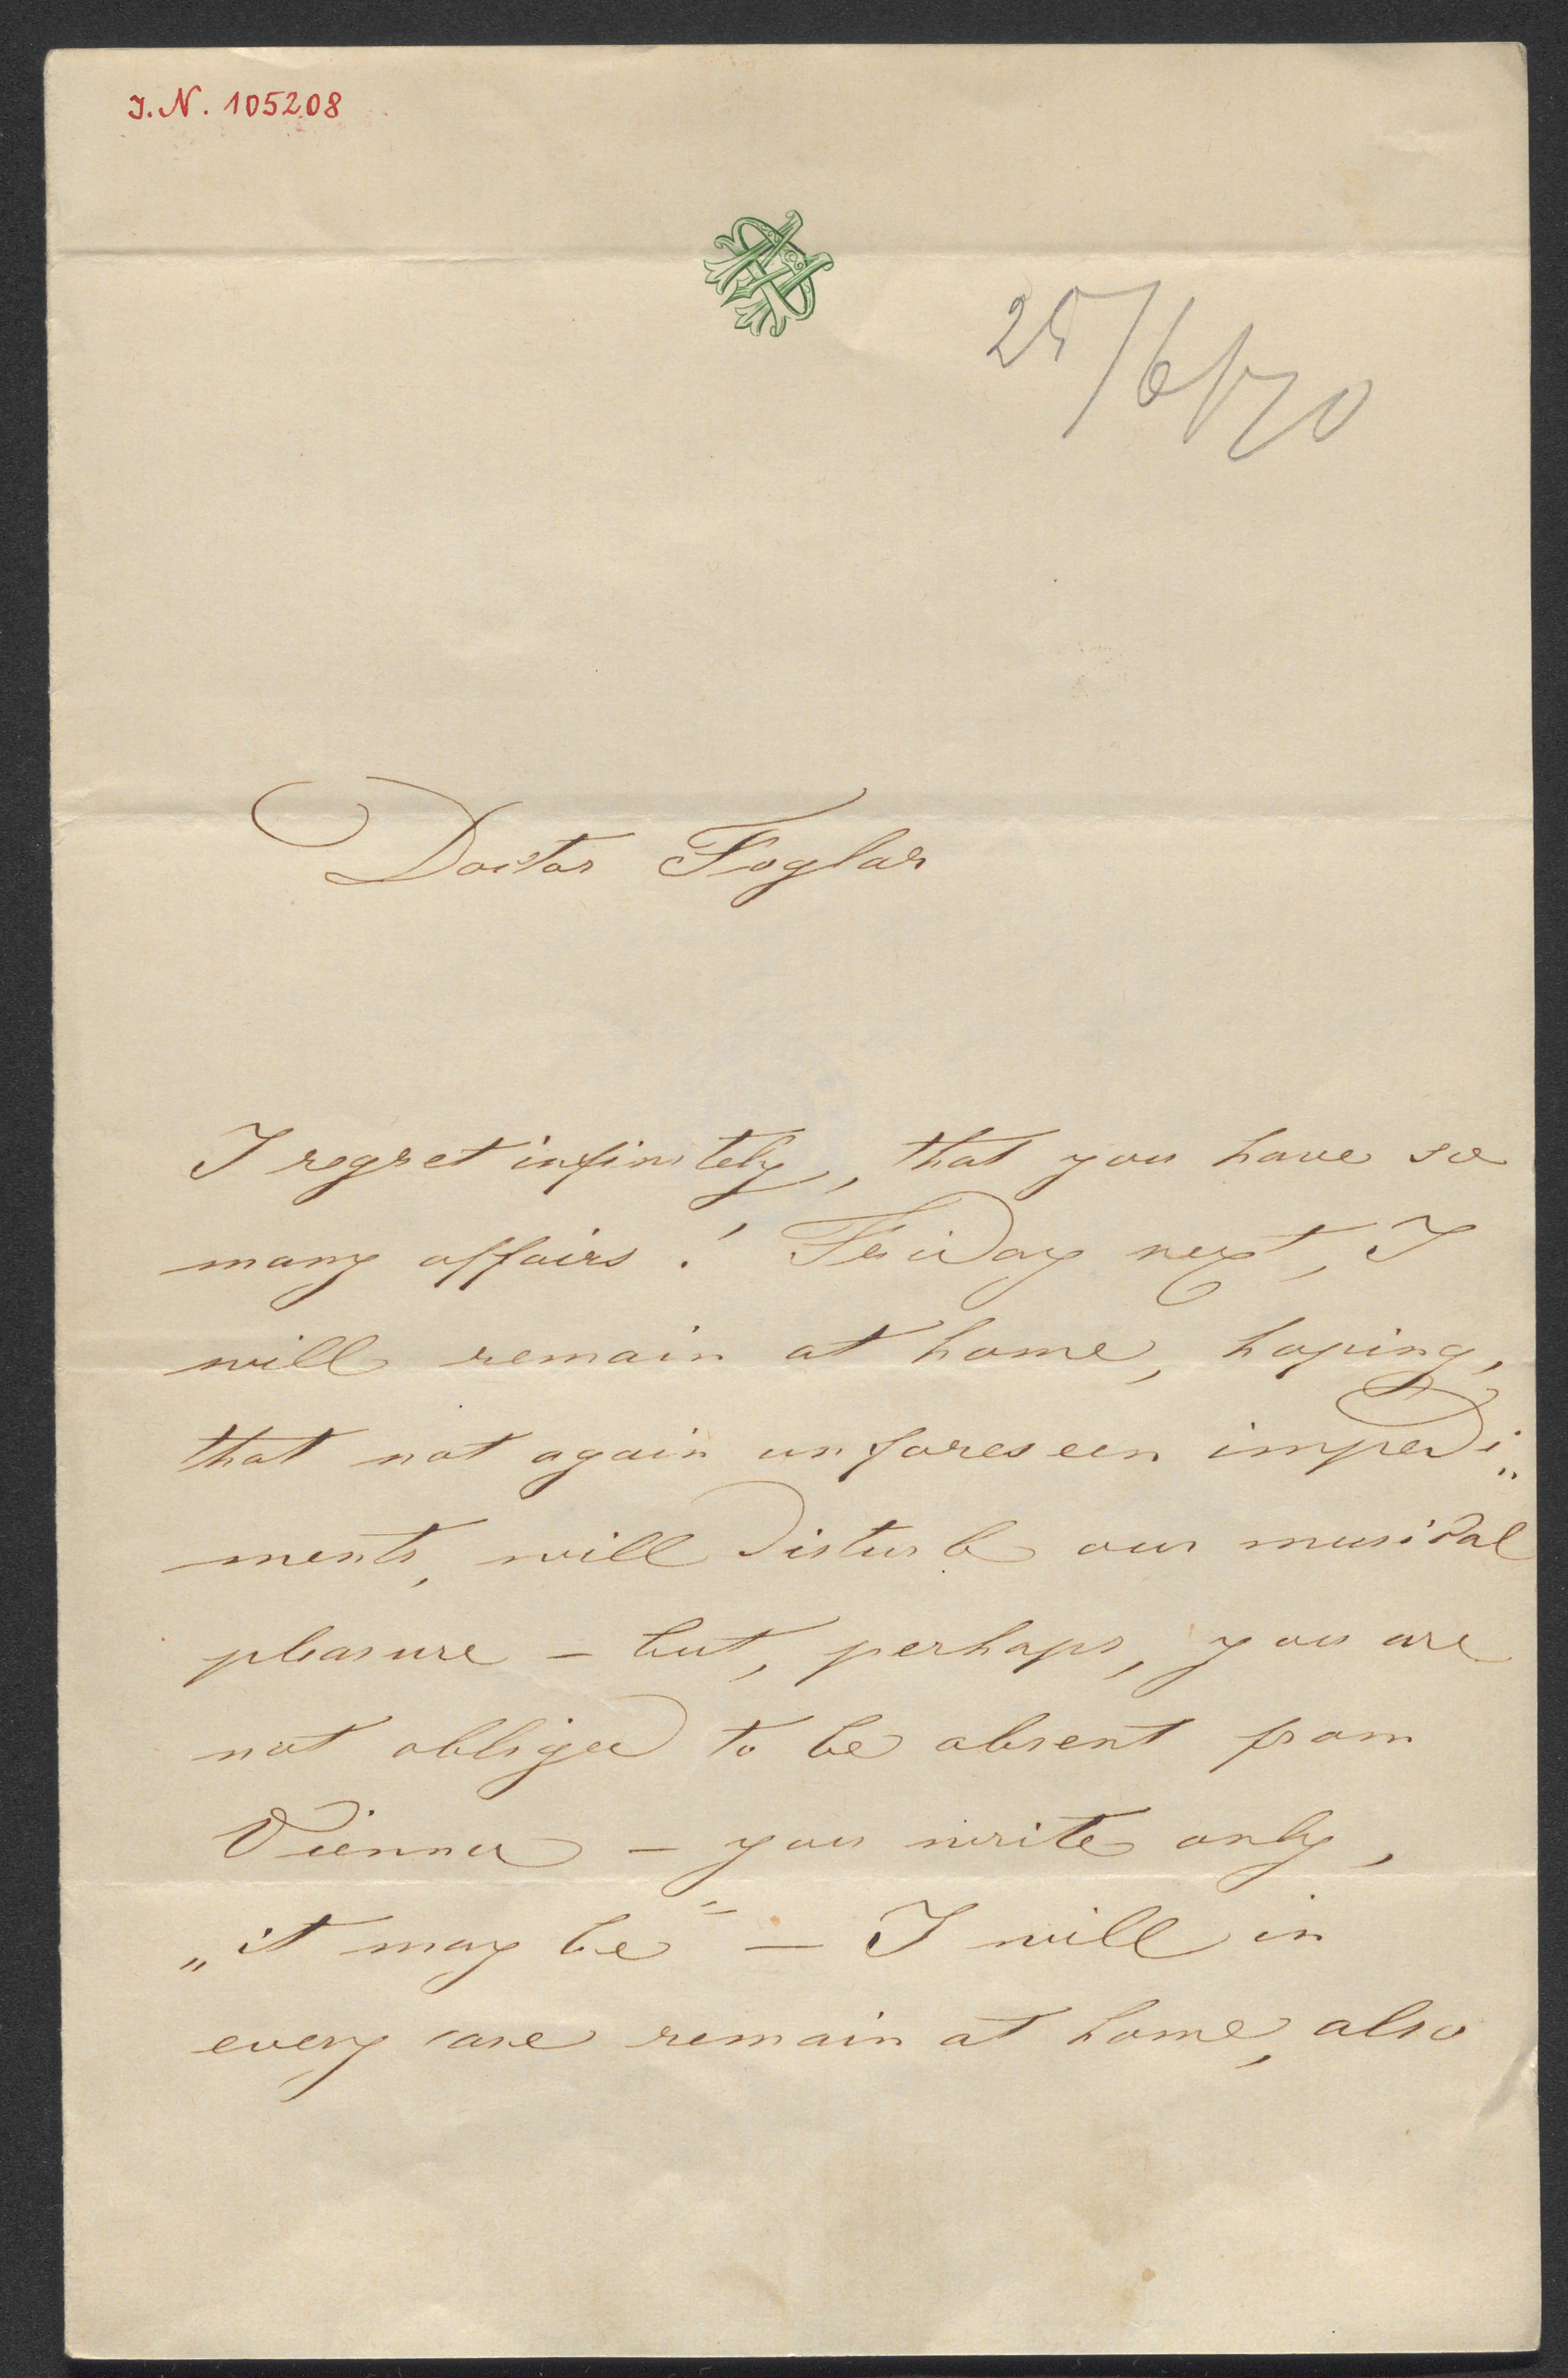 I.N. 105208
25/6/70
Doctor Foglar
I regret infinitely, that you have so
many affairs! Friday next, I
will remain at home, hoping,
that not again unforeseen impedi„
ments, will disturb our musical
pleasure – but, perhaps, you are
not obliged to be absent from
Vienna – you write only,
„it may be" – I will in
every case remain at home, also